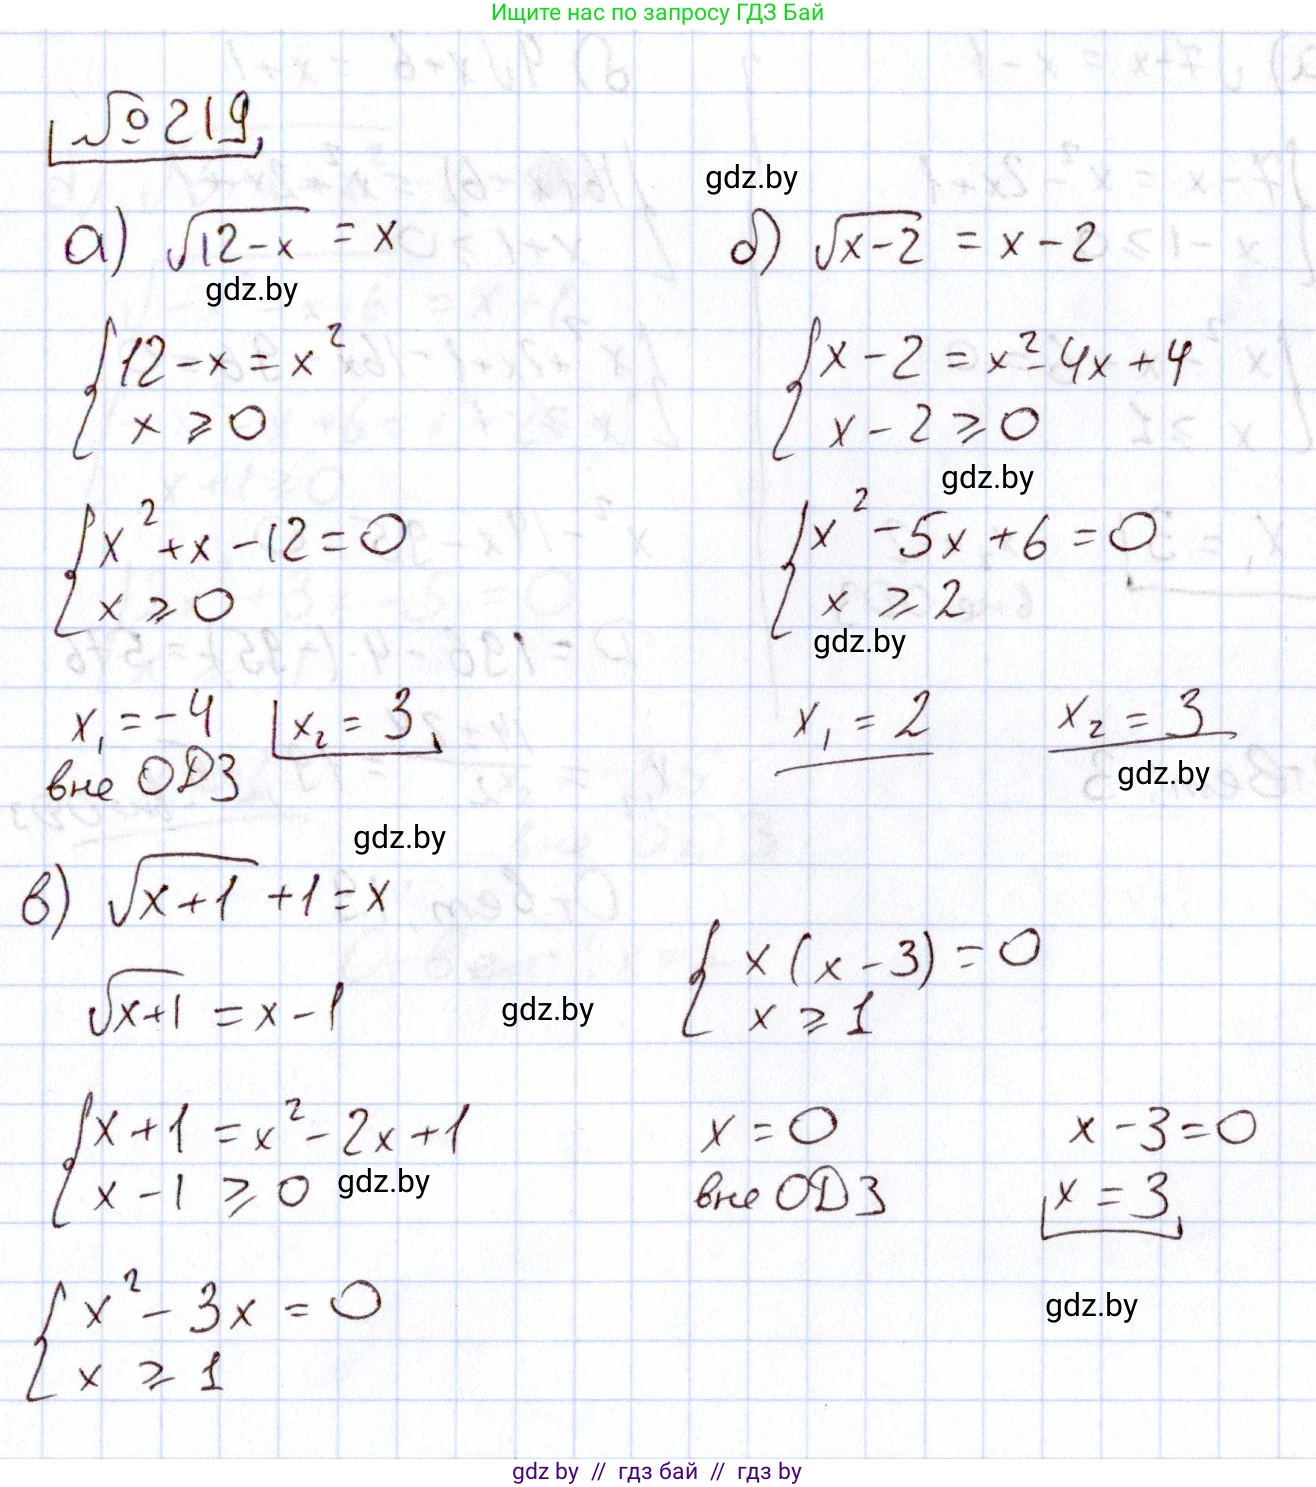 Ищите нас по запросу ГДЗ Бай
№ 219
а) √(12-x) = x
gdz.by
{ 12 - x = x²
x ≥ 0
{ x² + x - 12 = 0
x ≥ 0
x₁ = -4 x₂ = 3
вне ОДЗ
gdz.by
б) √(x-2) = x - 2
{ x - 2 = x² - 4x + 4
x - 2 ≥ 0
gdz.by
{ x² - 5x + 6 = 0
x ≥ 2
gdz.by
x₁ = 2 x₂ = 3
gdz.by
gdz.by
в) √(x+1) + 1 = x
√(x+1) = x - 1
gdz.by
{ x + 1 = x² - 2x + 1
x - 1 ≥ 0
gdz.by
{ x² - 3x = 0
x ≥ 1
{ x (x - 3) = 0
x ≥ 1
x = 0 x - 3 = 0
вне ОДЗ x = 3
gdz.by
gdz by // гдз бай // гдз by